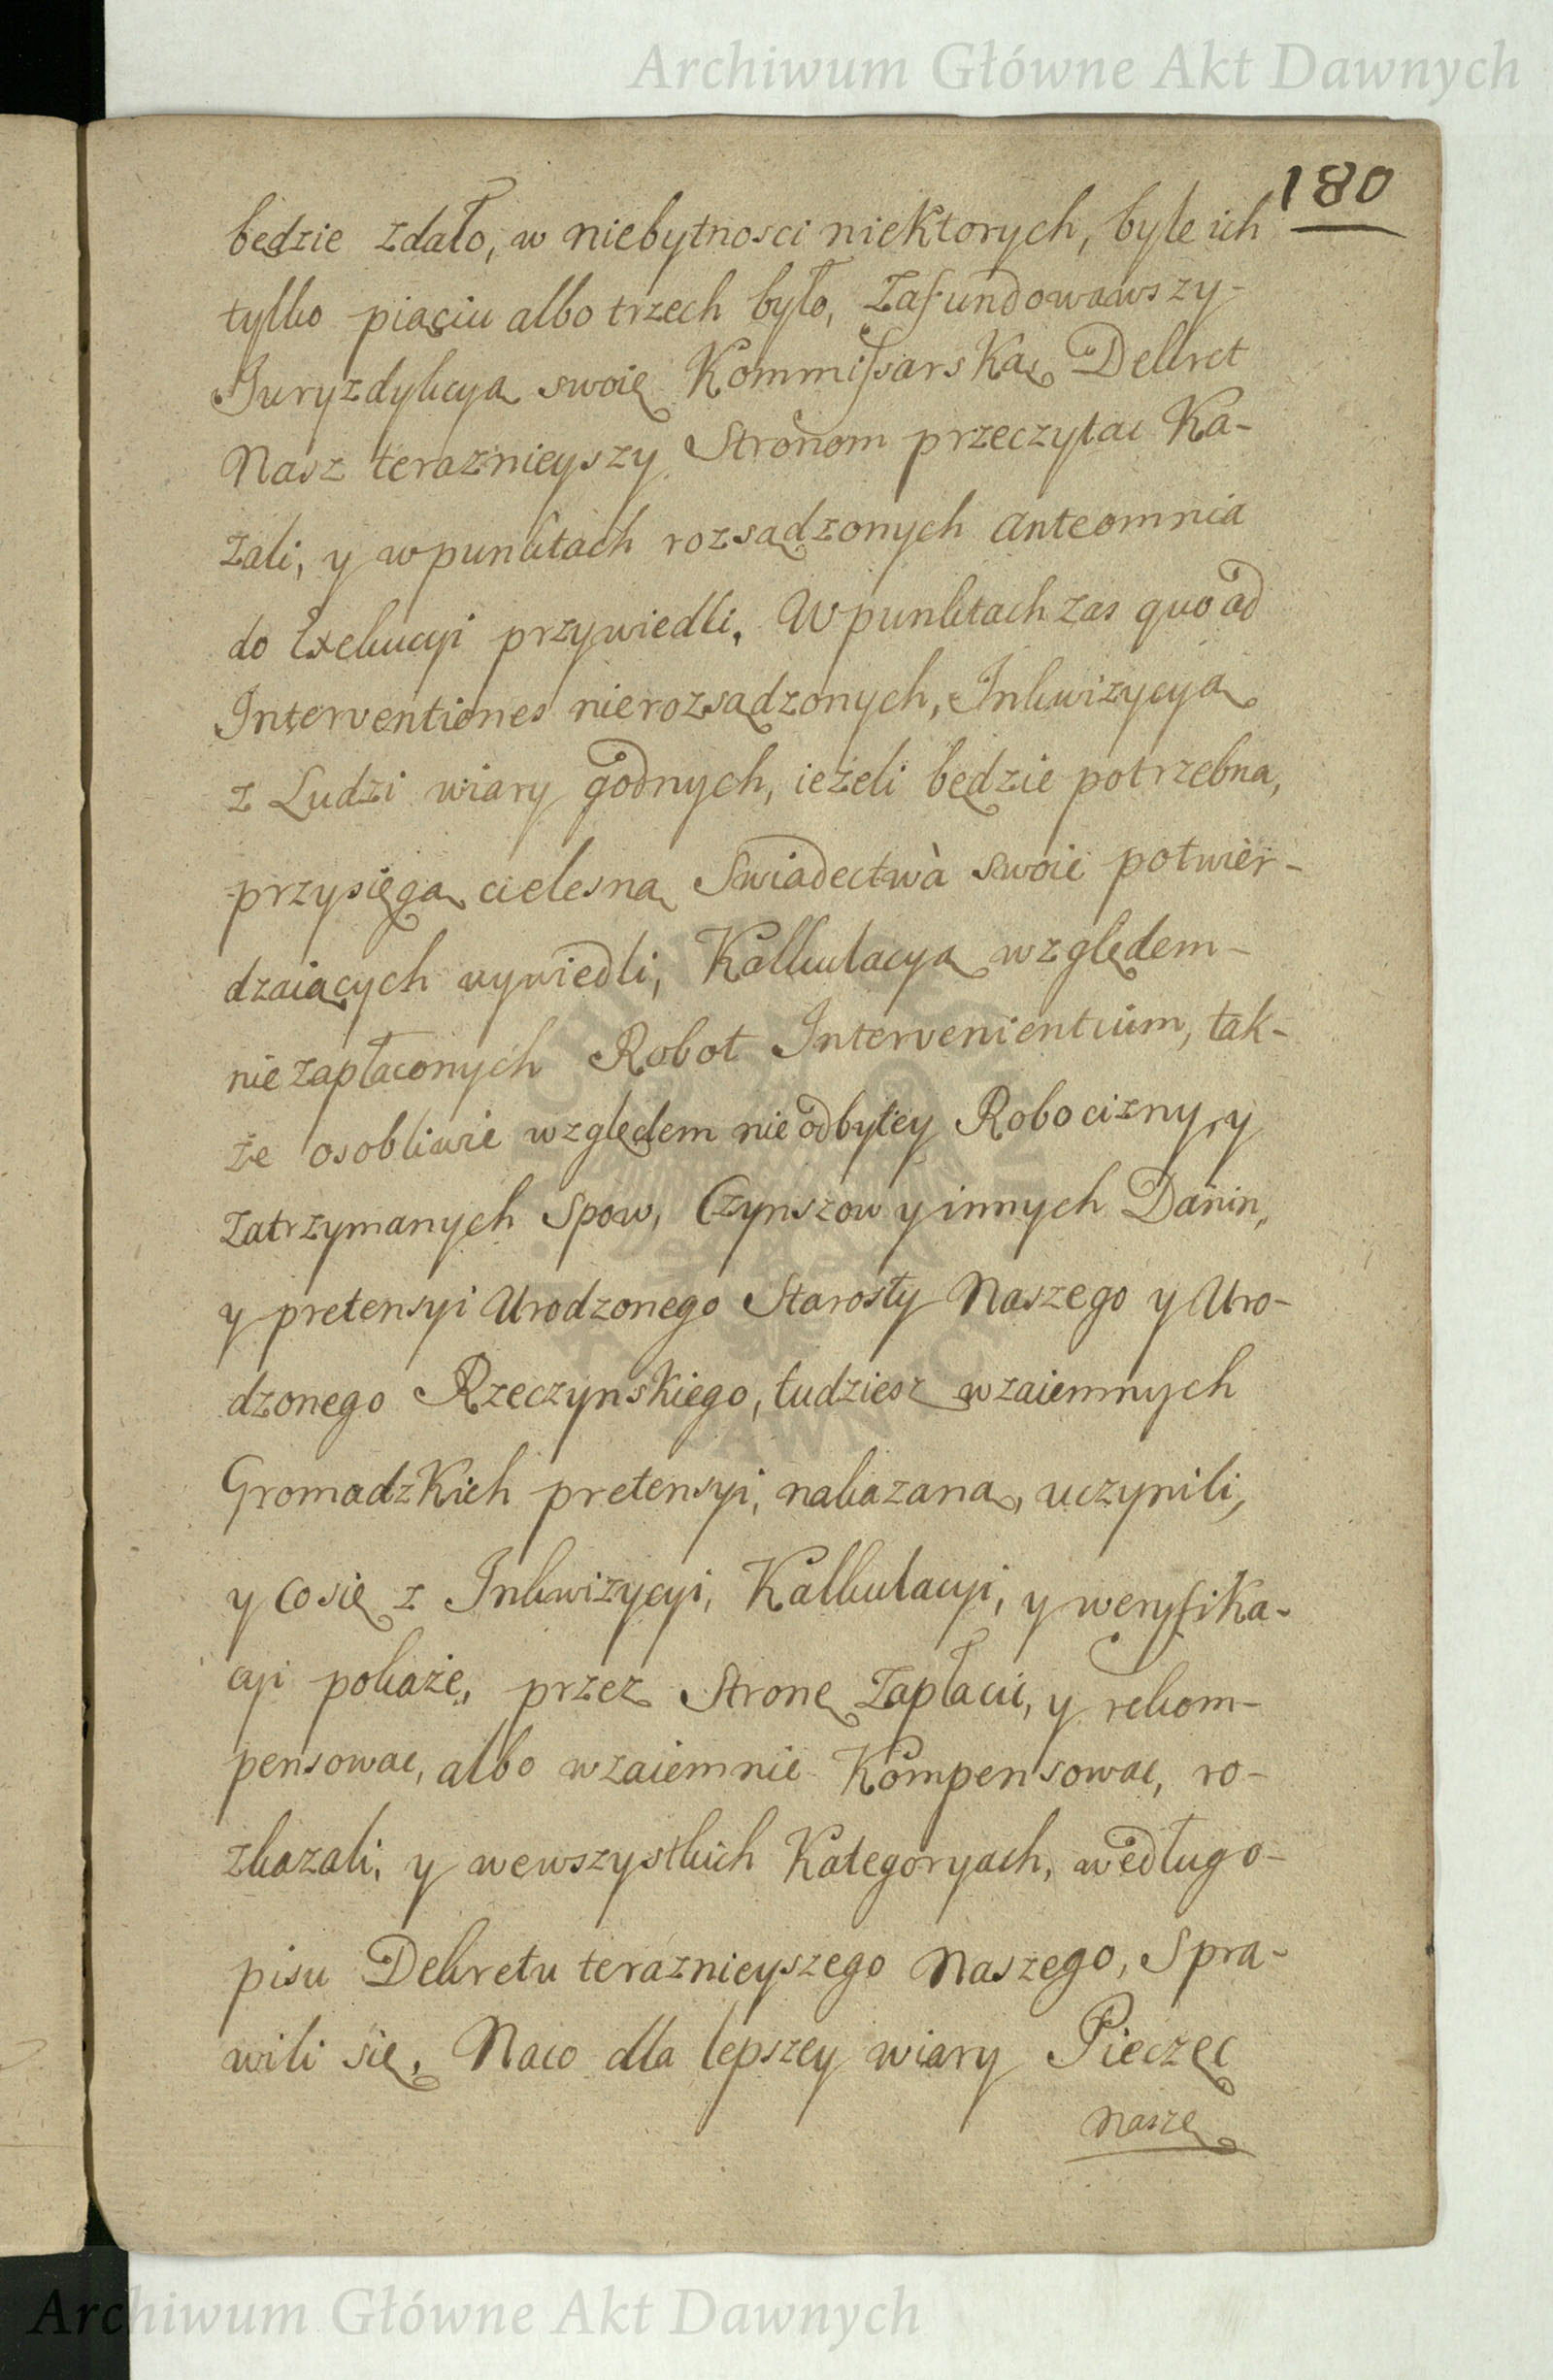 Archiwum Główne Akt Dawnych
180
będzie zdało, w niebytnosci niektorych, byle ich
tylko piąciu albo trzech było, zafundowawszy-
Juryzdykcyą swoię Kommissarską, Dekret
Nasz teraznieyszy Stronom przeczytac ka-
zali, y w punktach rozsądzonych anteomnia
do Exekucyi przywiedli. W punktach zas quoad
Interventiones nierozsądzonych, Inkwizycyą
z Ludzi wiary godnych, ieżeli będzie potrzebna,
przysięgą cielesną Swiadectwà swoie potwier-
dzaiących wywiedli, Kalkulacyą względem-
nie zapłaconych Robot Intervenientium, tak-
że osobliwie względem nie odbytey Robocizny, y
zatrzymanych Spow, Czynszow y innych Danin,
y pretensyi Urodzonego Starosty Naszego y Uro-
dzonego Rzeczynskiego, tudziesz wzaiemnych
Gromadzkich pretensyi, nakazaną, uczynili,
y co się z Inkwizycyi, Kalkulacyi, y weryfika-
cyi pokaże, przez Stronę zapłacic, y rekom-
pensowac, albo wzaiemnie kompensowac, ro-
zkazali, y wewszystkich Kategoryach, według o-
pisu Dekretu teraznieyszego Naszego, Spra-
wili się. Naco dla lepszey wiary Pieczęc
naszę
Archiwum Główne Akt Dawnych